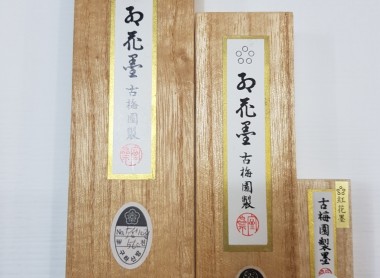 紅花墨
古梅園製
紅花墨
古梅園製
紅花墨
古梅園製墨